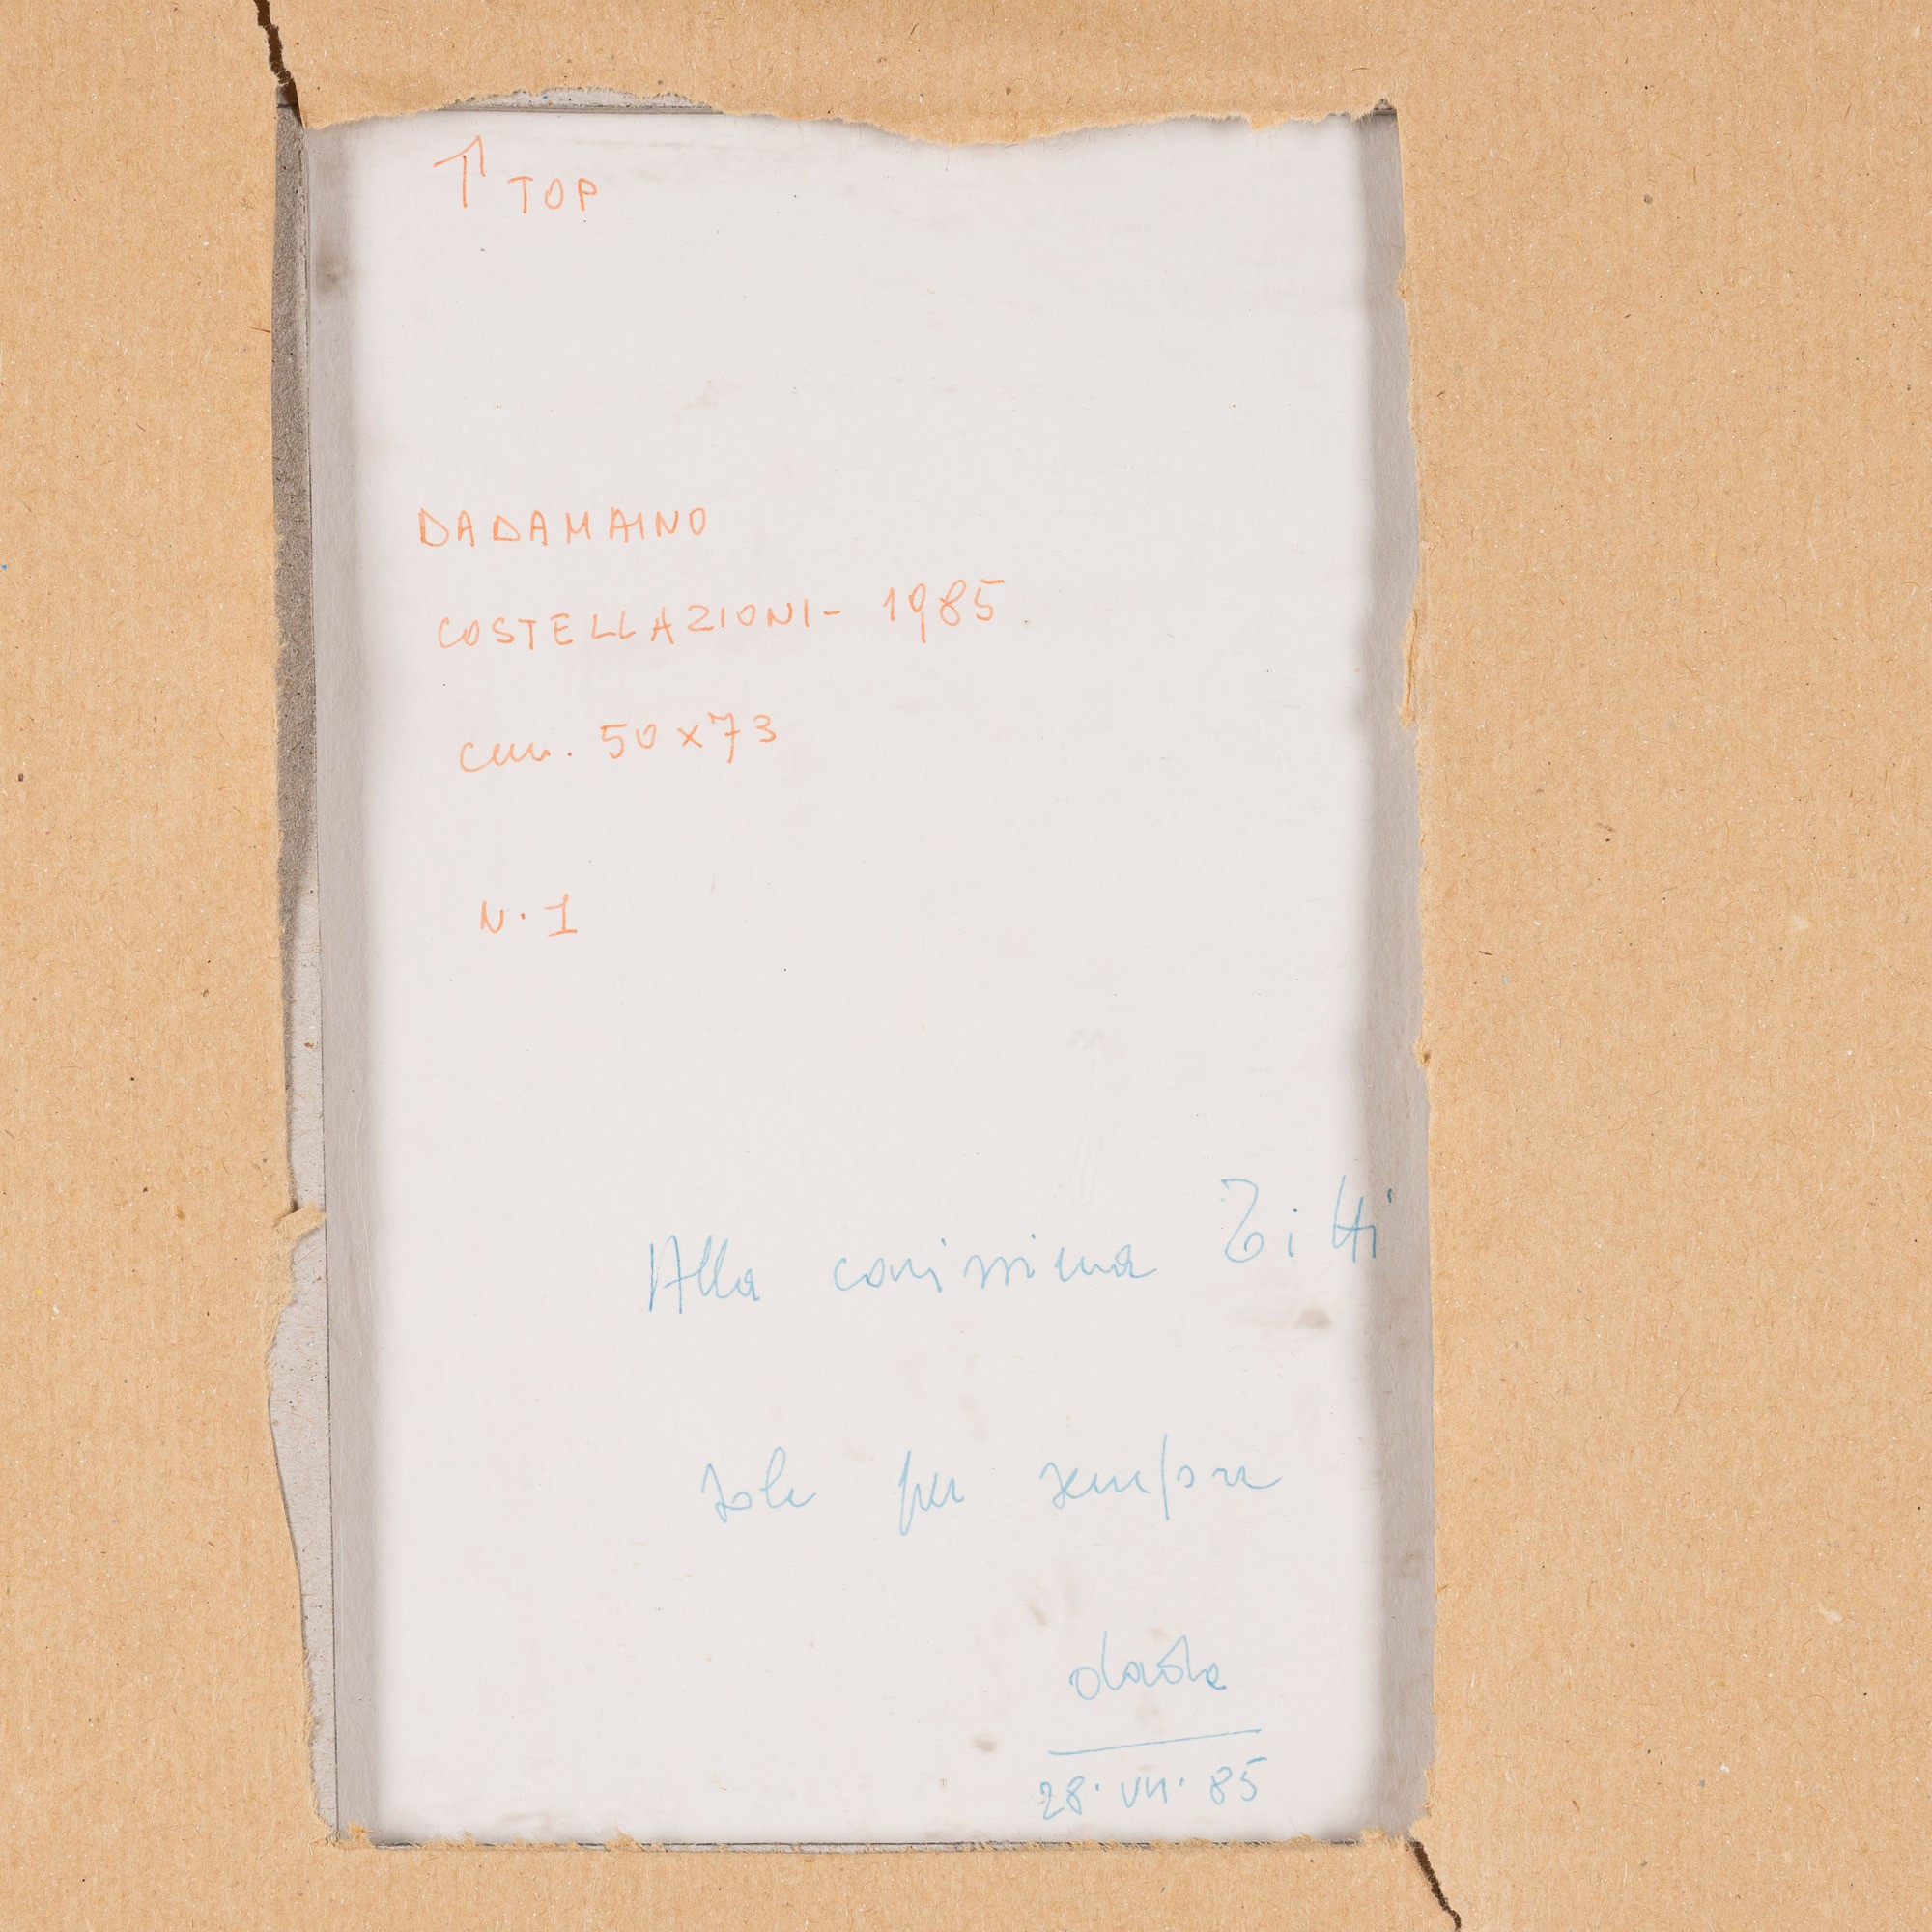 ↑ TOP
DADAMAINO
COSTELLAZIONI - 1985
cm. 50 x 73
N. 1
Alla carissima Titti
per sempre
dada
28. VII. 85